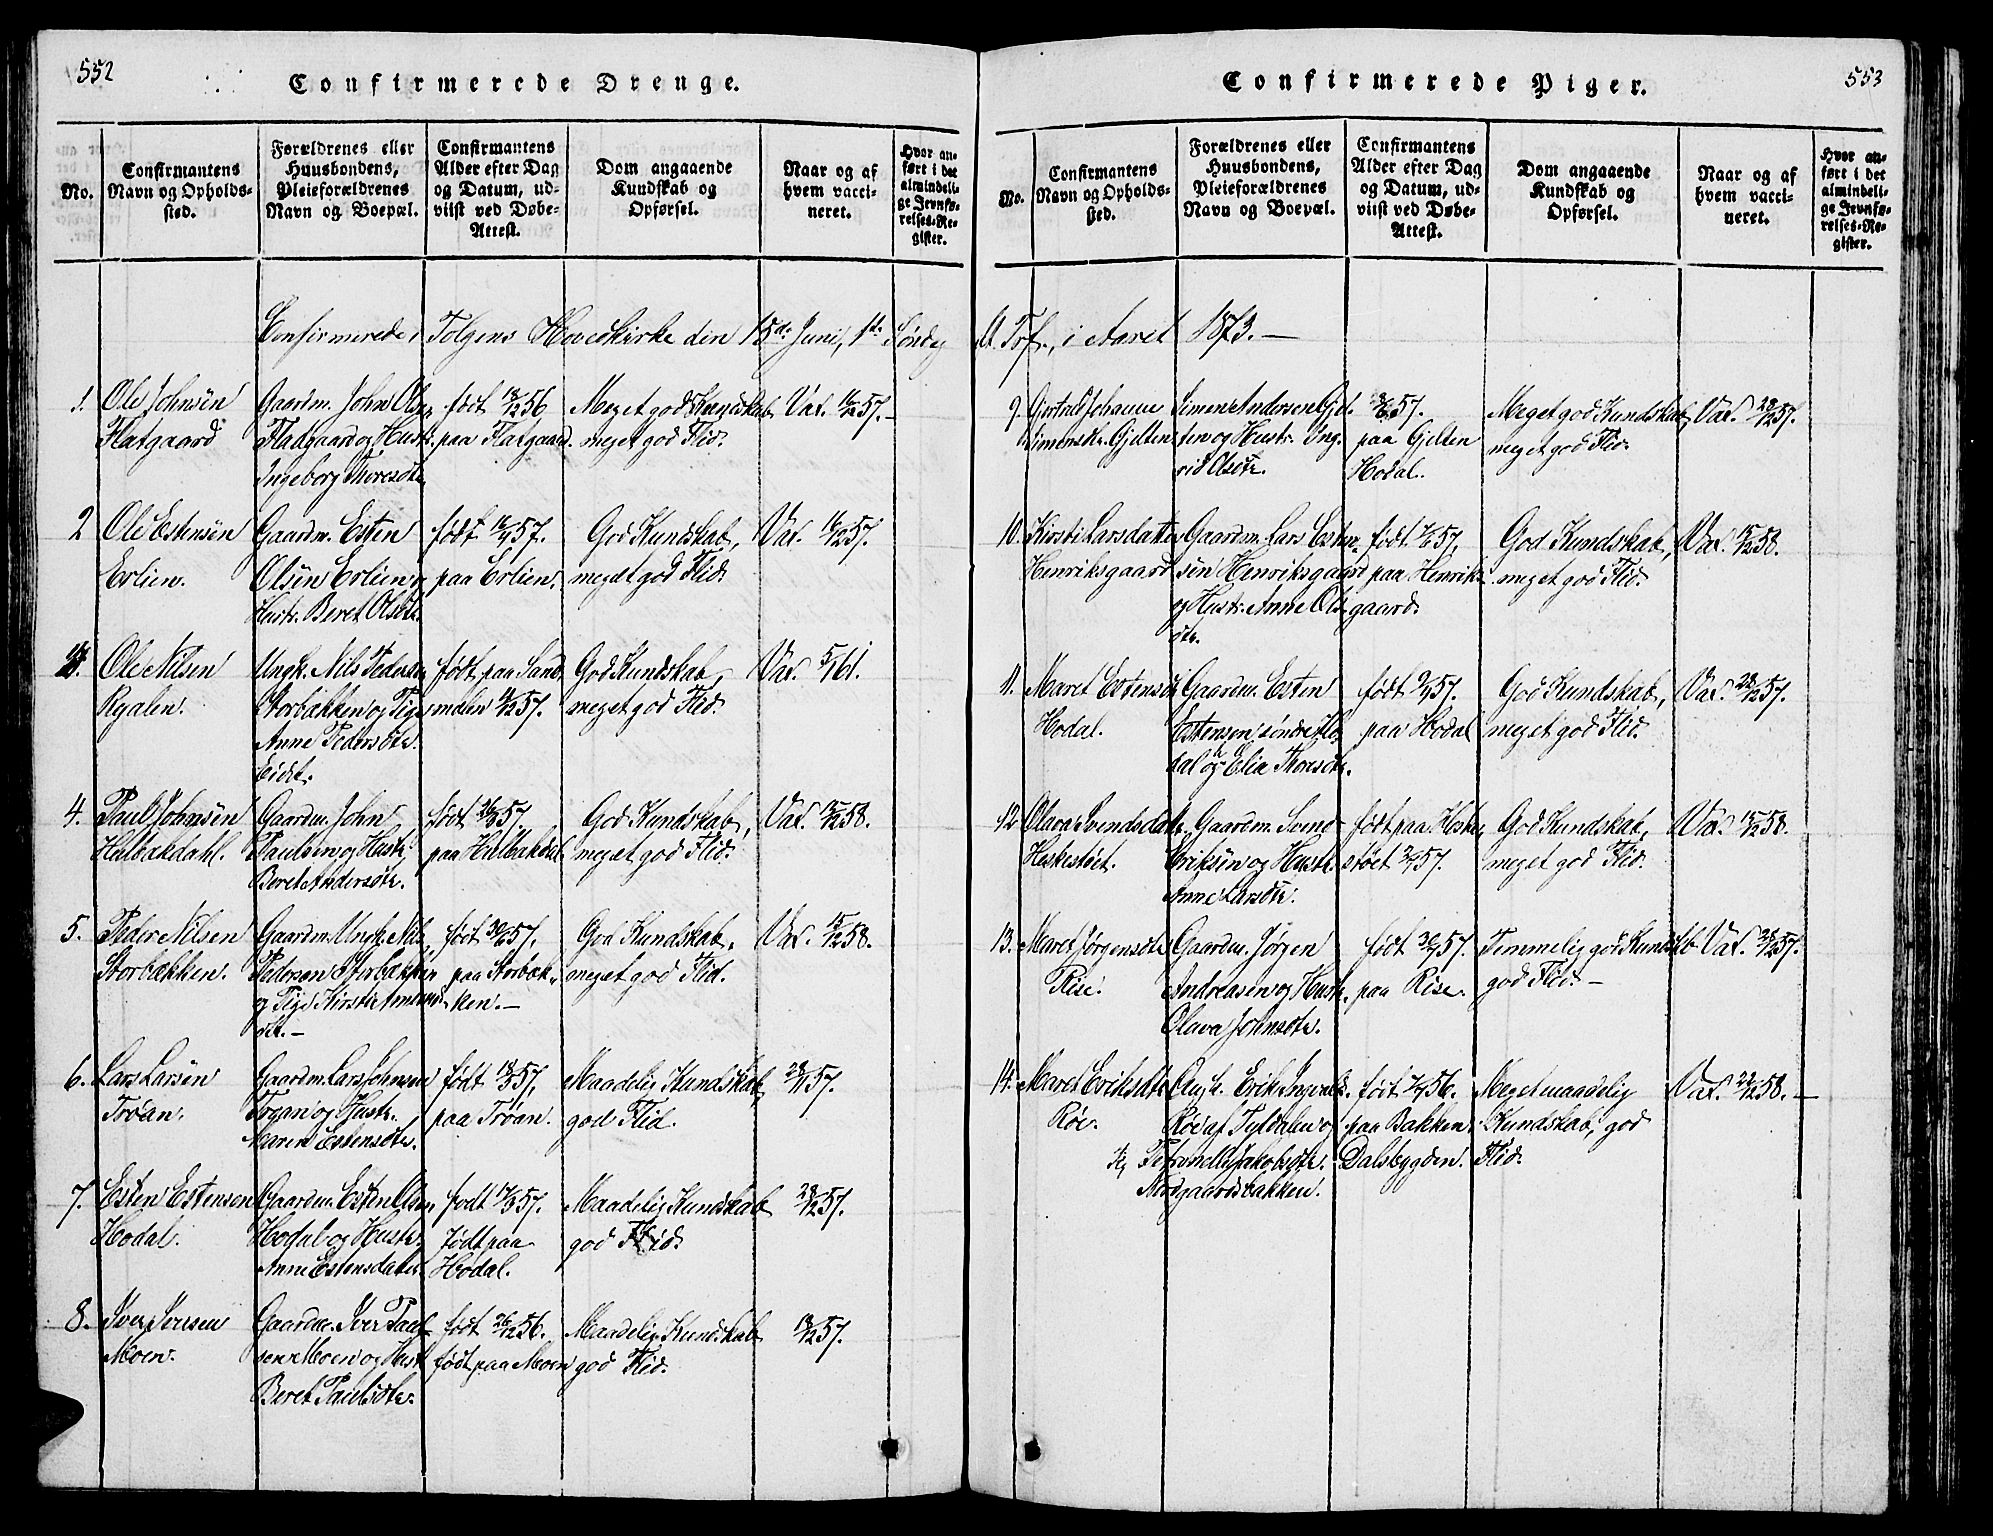 552
Confirmerede Drenge.
No.
Confirmantens
Navn og Opholds-
sted.
Forældrenes eller
Huusbondens,
Pleieforældrenes
Navn og Boepæl.
Confirmantens
Alder efter Dag
og Datum, ud-
viist ved Døbe-
Attest.
Dom angaaende
Kundskab og
Opførsel.
Naar og af
hvem vacci-
neret.
Hvor an-
ført i det
almindeli-
ge Jevnfø-
relses-Re-
gister.
Confirmerede i Tolgens Hovedkirke den 15de Juni, 1st Søndag
1.
Ole Johnsen
Flatgaard
Gaardm. John Olsen
Flatgaard og Hustr.
Ingeborg Thoresdtr.
født 18/12 56
paa Flatgaard.
Meget god Kundskab
meget god Flid.
Vax. 16/12 57.
2
Ole Estensen
Erlien.
Gaardm. Esten
Olsen Erlien og
Hustr. Beret Olsdtr.
født 57.
paa Erlien.
God Kundskab,
meget god Flid.
Vax. 16/12 57.
Ole Nilsen
Ungk. Nils Pedersen
Storbækken og Pige
Anne Pedersdtr.
Eidet.
født paa
57.
God Kundskab,
meget god Flid.
Vax. 61.
4.
Paul Johnsen
Hulbækdahl.
Gaardm. John
Paulsen og Hustr.
Beret Andersdtr.
født 57
paa Hulbækdal
God Kundskab,
meget god Flid.
Vax. 15/12 58.
5.
Peder Nilsen
Storbækken.
Gaardm. Ungk. Nils
Pedersen Storbækken
og Pige Kirstie
dtr.
født 57,
paa Storbæk-
ken.
God Kundskab,
meget god Flid.
Vax. 15/12 58.
6.
Lars Larsen
Trøan.
Gaardm. Lars Johnsen
Trøan og Hustr.
Maren Estensdtr.
født 57,
paa Trøan.
Maadelig Kundskab,
god Flid.
57.
7.
Esten Estensen
Hodal.
Gaardm. Esten Olsen
Hodal og Hustr.
Anne Estensdatter.
født 57.
født paa
Hodal.
Maadelig Kundskab
god Flid.
28/12 57.
8.
Iver Iversen
Moen.
Gaardm. Iver Paul-
sen Moen og Hustr.
Beret Paulsdtr.
født 26/12 56.
født paa Moen
Maadelig Kundskab
god Flid.
57.
553
Confirmerede Piger.
No.
Confirmantens
Navn og Opholds-
sted.
Forældrenes eller
Huusbondens,
Pleieforældrenes
Navn og Boepæl.
Confirmantens
Alder efter Dag
og Datum, ud-
viist ved Døbe-
Attest.
Dom angaaende
Kundskab og
Opførsel.
Naar og af
hvem vacci-
neret.
Hvor an-
ført i det
almindeli-
ge Jevnfø-
relses-Re-
gister.
Trf., i Aaret 1873.
9.
Johanne
Simensdtr. Gjelten
Simen Andersen Gjel-
ten og Hustr. Ing-
rid Olsdtr.
57.
paa Gjelten
Hodal.
Meget god Kundskab,
meget god Flid.
Vax. 28/12 57.
10.
Kirsti Larsdatter
Henriksgaard
Gaardm. Lars Esten-
sen Henriksgaard
og Hustr. Anne Ols-
dtr.
født 57,
paa Henriks-
gaard.
God Kundskab,
meget god Flid.
Vax. 15/12 58.
11.
Maret Estensdtr.
Hodal.
Gaardm. Esten
Estensen søndre Ho-
dal og Elia Thoresdtr.
født 57.
paa Hodal
God Kundskab,
meget god Flid.
Vax. 28/12 57.
12
Olava Svendsdatr.
Heskestøet.
Gaardm. Svend
Eriksen og Hustr.
Anne Larsdtr.
født paa Heske-
støet 57.
God Kundskab,
meget god Flid.
Vax. 15/12 58.
13.
Maret Jørgensdtr.
Rise.
Gaardm. Jørgen
Andreasen og Hustr.
Olava Johnsdtr.
født 57.
paa Rise.
Temmelig god Kundskb.
god Flid.
Vax. 28/12 57.
14.
Maret Eriksdtr.
Røe.
Erik Ingvalds.
Røe af Tyldalen og
Jakobsdtr.
Nordgaardsbakken.
født 56.
paa Bakken
Dalsbygden.
Meget maadelig
Kundskab, god
Flid.
Vax. 58.